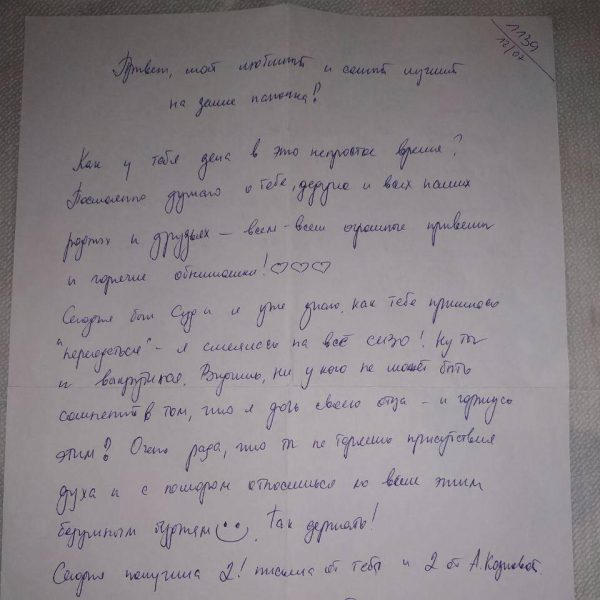 1139
12/07
Привет, мой любимый и самый лучший
на земле папочка!
Как у тебя дела в это непростое время?
Постоянно думаю о тебе, дедуле и всех наших
родных и друзьях – всем-всем огромные приветы
и горячие обнимашки! ♡♡♡
Сегодня был Суд и я уже знаю, как тебе пришлось
"переодеться" – я смеялась на всё сизо! Ну ты
и выкрутился. Видишь, ни у кого не может быть
сомнений в том, что я дочь своего отца – и горжусь
этим! Очень рада, что ты не теряешь присутствия
духа и с юмором относишься ко всем этим
безумным бурям Так держать!
Сегодня получила 2! письма от тебя и 2 от А.